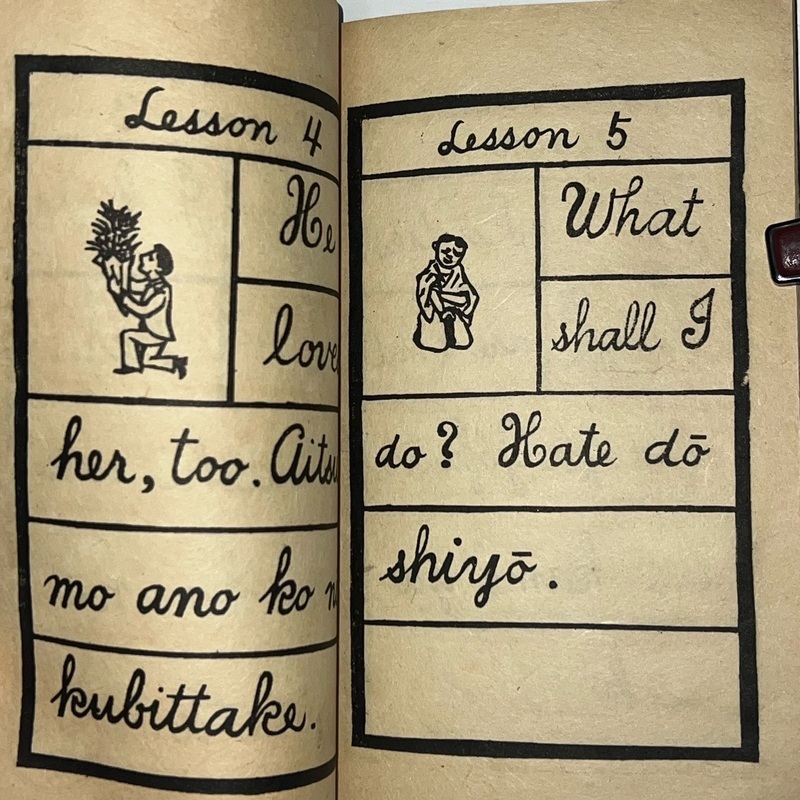 Lesson 4
He
love
her, too. Aitsu
mo ano ko n
kubittake.
Lesson 5
What
shall I
do? Hate dō
shiyō.